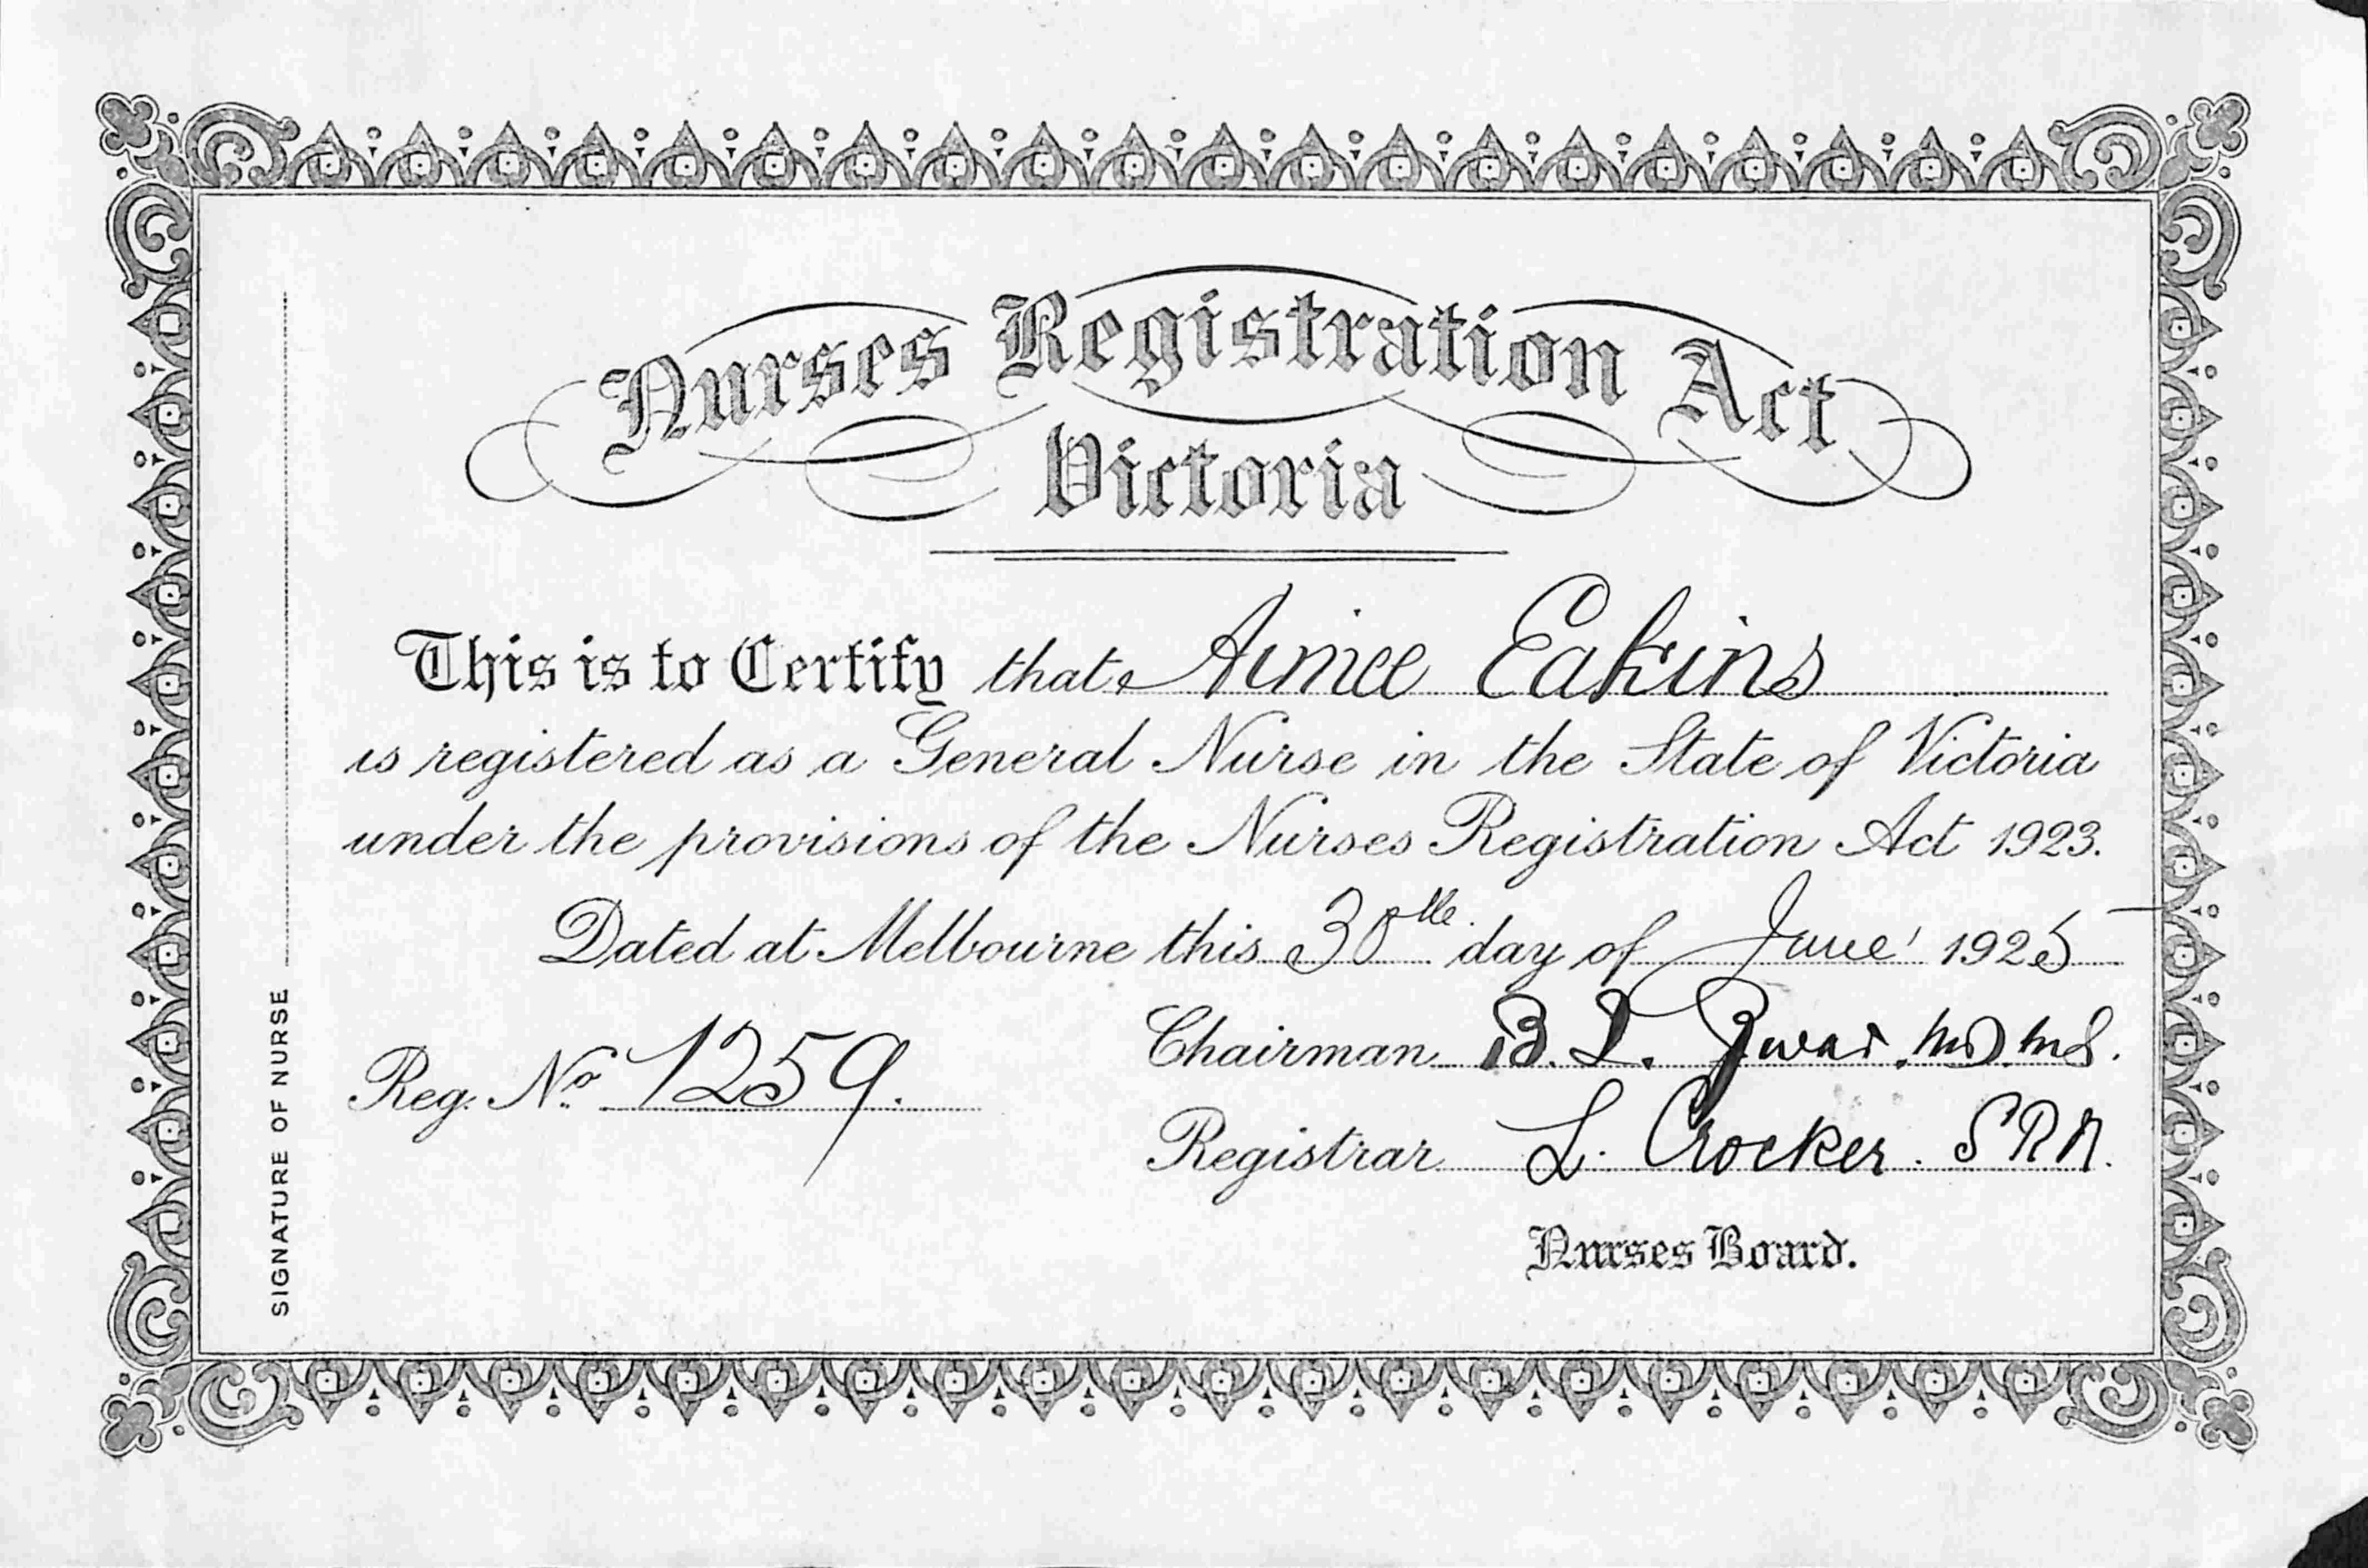 Nurses Registration Act
Victoria
This is to Certify that Aimee Eakins
is registered as a General Nurse in the State of Victoria
under the provisions of the Nurses Registration Act 1923.
Dated at Melbourne this 30th day of June 1925
Reg. No 1259.
Chairman B. T. Zwar. MD MS.
Registrar L. Crocker. SRN.
Nurses Board.
SIGNATURE OF NURSE